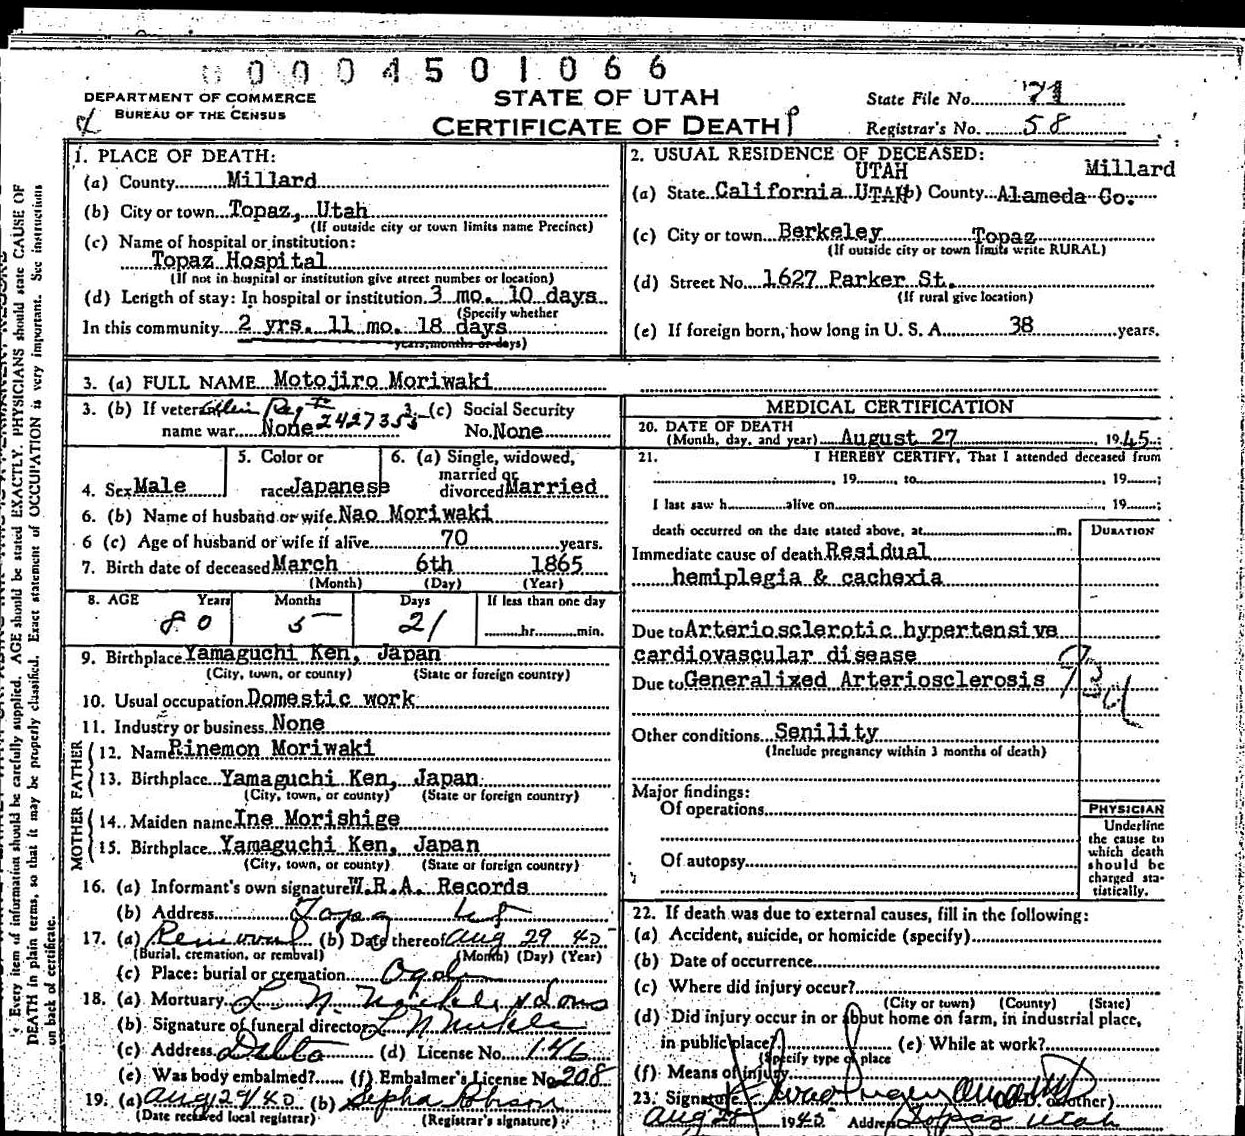 0004501066
DEPARTMENT OF COMMERCE
BUREAU OF THE CENSUS
STATE OF UTAH
CERTIFICATE OF DEATH
State File No. 71
Registrar's No. 58
1. PLACE OF DEATH:
(a) County Millard
(b) City or town Topaz, Utah
(If outside city or town limits name Precinct)
(c) Name of hospital or institution:
Topaz Hospital
(If not in hospital or institution give street number or location)
(d) Length of stay: In hospital or institution 3 mo. 10 days
(Specify whether
In this community 2 yrs. 11 mo. 18 days
years, months or days)
2. USUAL RESIDENCE OF DECEASED:
UTAH Millard
(a) State California UTAH (b) County Alameda Co.
(c) City or town Berkeley Topaz
(If outside city or town limits write RURAL)
(d) Street No. 1627 Parker St.
(If rural give location)
(e) If foreign born, how long in U. S. A. 38 years.
3. (a) FULL NAME Motojiro Moriwaki
3. (b) If veteran Alien Reg # 2427355
name war None
3. (c) Social Security
No. None
4. Sex Male
5. Color or
race Japanese
6. (a) Single, widowed,
married or
divorced Married
6. (b) Name of husband or wife Nao Moriwaki
6 (c) Age of husband or wife if alive 70 years.
7. Birth date of deceased March 6th 1865
(Month) (Day) (Year)
8. AGE Years Months Days If less than one day
80 5 21 hr. min.
9. Birthplace Yamaguchi Ken, Japan
(City, town, or county) (State or foreign country)
10. Usual occupation Domestic work
11. Industry or business None
FATHER
12. Name Rinemon Moriwaki
13. Birthplace Yamaguchi Ken, Japan
(City, town, or county) (State or foreign country)
MOTHER
14. Maiden name Ine Morishige
15. Birthplace Yamaguchi Ken, Japan
(City, town, or county) (State or foreign country)
16. (a) Informant's own signature W.R.A. Records
(b) Address Topaz Ut
17. (a) Removal (b) Date thereof Aug 29 45
(Burial, cremation, or removal) (Month) (Day) (Year)
(c) Place: burial or cremation Ogden
18. (a) Mortuary L. N. & Sons
(b) Signature of funeral director L N
(c) Address Delta (d) License No. 146
(e) Was body embalmed? (f) Embalmer's License No. 208
19. (a) Aug 29/45 (b) Robison
(Date received local registrar) (Registrar's signature)
MEDICAL CERTIFICATION
20. DATE OF DEATH
(Month, day, and year) August 27 1945
21. I HEREBY CERTIFY, That I attended deceased from
, 19 to , 19 ;
I last saw h alive on , 19 ;
death occurred on the date stated above, at m.
DURATION
Immediate cause of death Residual
hemiplegia & cachexia
Due to Arteriosclerotic hypertensive
cardiovascular disease
Due to Generalized Arteriosclerosis
Other conditions Senility
(Include pregnancy within 3 months of death)
Major findings:
Of operations
Of autopsy
PHYSICIAN
Underline
the cause to
which death
should be
charged sta-
tistically.
22. If death was due to external causes, fill in the following:
(a) Accident, suicide, or homicide (specify)
(b) Date of occurrence
(c) Where did injury occur?
(City or town) (County) (State)
(d) Did injury occur in or about home on farm, in industrial place,
in public place? (e) While at work?
(Specify type of place
(f) Means of injury
23. Signature other)
Aug 28 1945 Address Topaz Utah
Every item of information should be carefully supplied. AGE should be stated EXACTLY. PHYSICIANS should state CAUSE OF
DEATH in plain terms, so that it may be properly classified. Exact statement of OCCUPATION is very important. See instructions
on back of certificate.